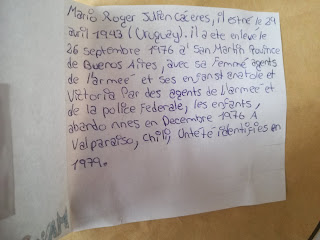 Mario Roger Julien Cáceres, il est né le 29
avril 1943 (Uruguay). il a ete enlevé le
26 septembre 1976 a' San Martin Province
de Buenos Aires, avec sa femme agents
de l'armeé et ses enfanst anatole et
Victoria Par des agents de L'armeé et
de la police Federale, les enfants,
abando nnes en Decembre 1976 A
Valparaiso, Chili, Unteté identifies en
1979.